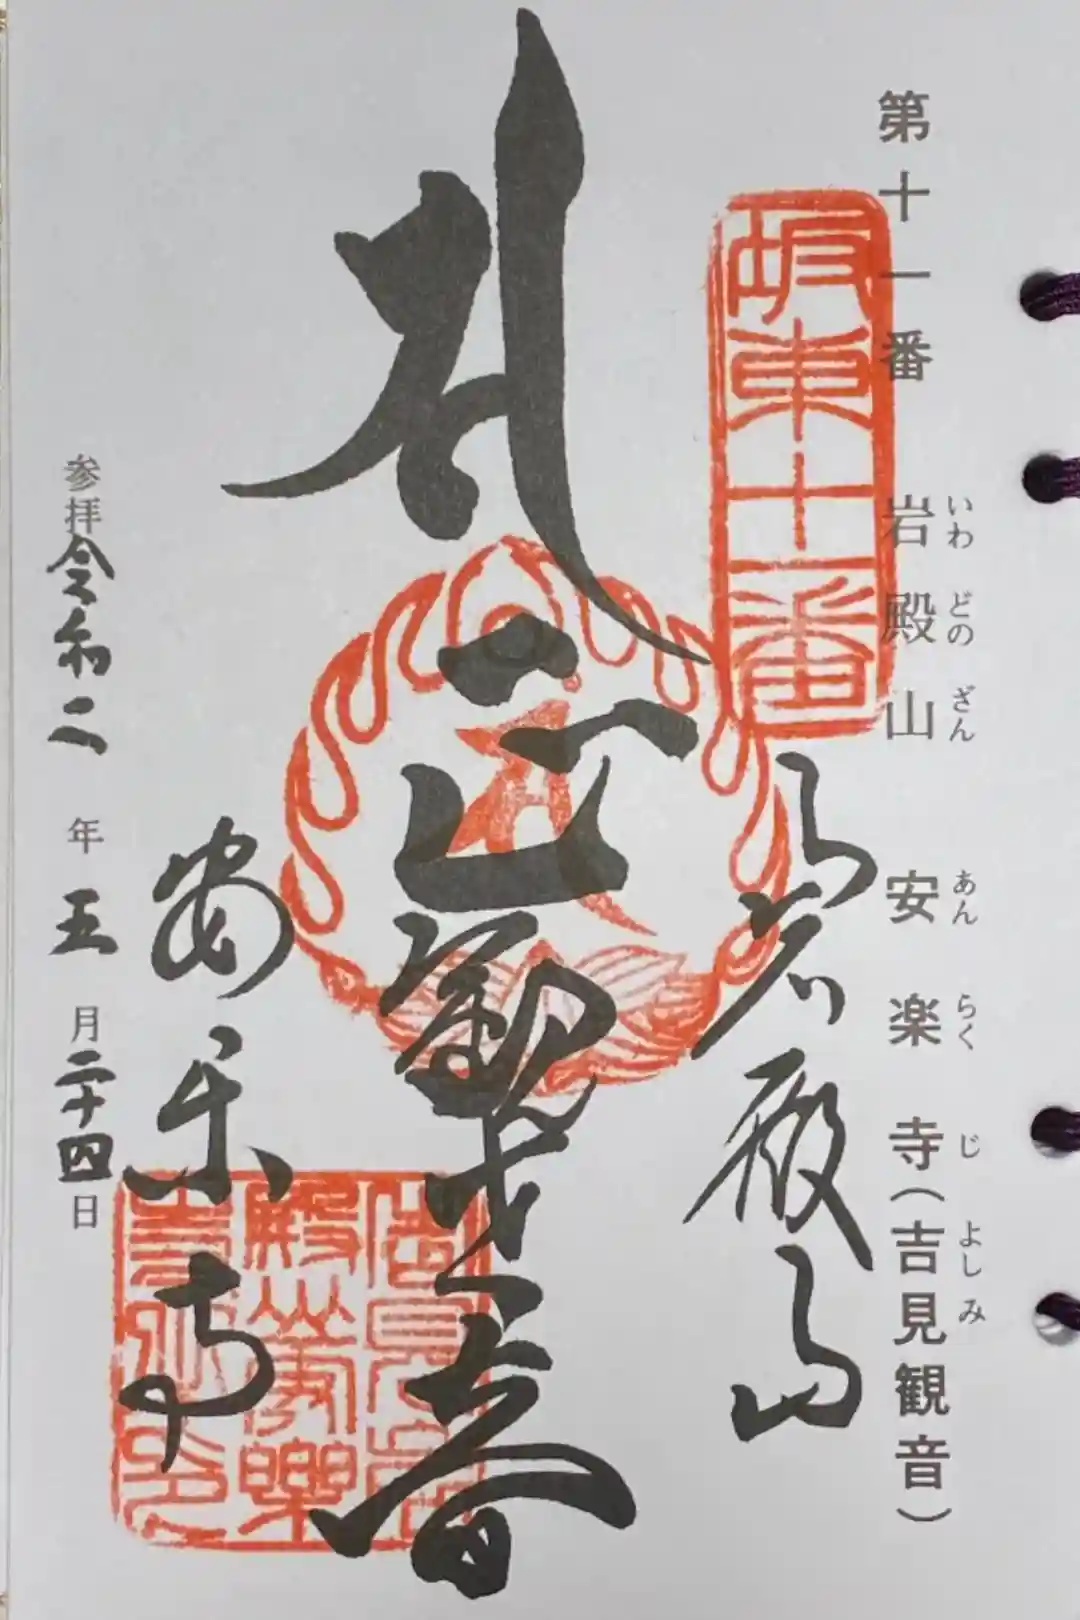 第十一番 岩殿山 安楽寺(吉見観音)
いわ どの ざん あん らく じ よしみ
坂東十一番
岩殿山
正觀世音
安楽寺
参拝令和二年五月二十四日